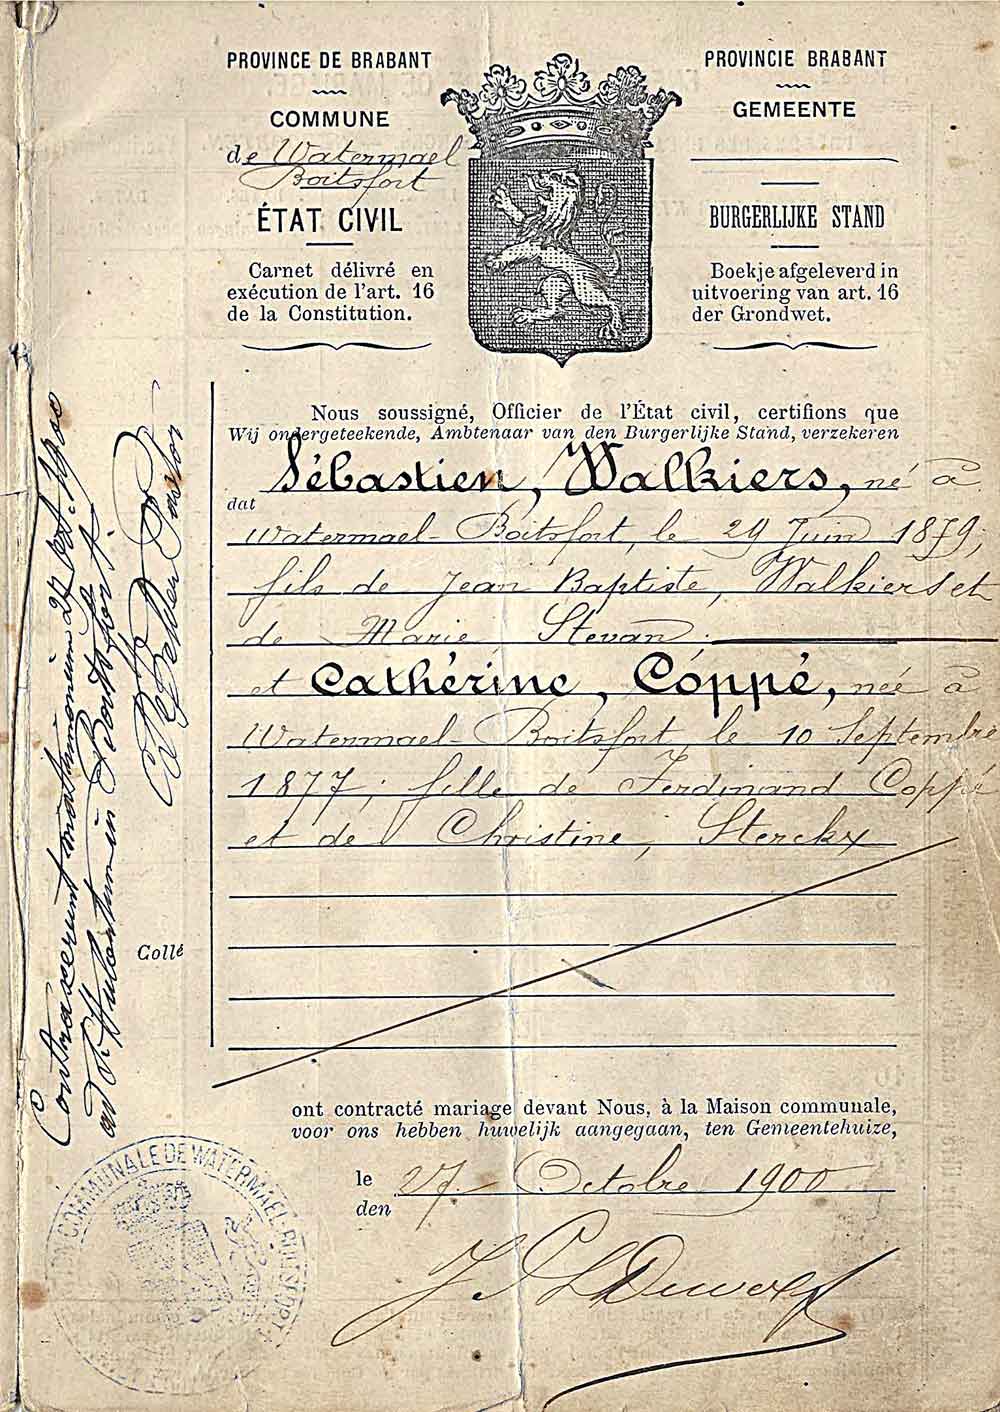 PROVINCE DE BRABANT
COMMUNE
de Watermael
Boitsfort
ÉTAT CIVIL
Carnet délivré en
exécution de l'art. 16
de la Constitution.
PROVINCIE BRABANT
GEMEENTE
BURGERLIJKE STAND
Boekje afgeleverd in
uitvoering van art. 16
der Grondwet.
Nous soussigné, Officier de l'État civil, certifions que
Wij ondergeteekende, Ambtenaar van den Burgerlijke Stand, verzekeren
dat Sébastien, Walkiers, né à
Watermael-Boitsfort, le 29 Juin 1879,
fils de Jean Baptiste, Walkiers et
de Marie Stevan;
et Cathérine, Coppé, née à
Watermael-Boitsfort, le 10 Septembre
1877; fille de Ferdinand Coppé
et de Christine, Sterckx
Collé
ont contracté mariage devant Nous, à la Maison communale,
voor ons hebben huwelijk aangegaan, ten Gemeentehuize,
le
den
27 Octobre 1900
Contraxerunt matrimonium 27 Oct. 1900
in Boitsfort
Pastor
COMMUNALE DE WATERMAEL-BOITSFORT